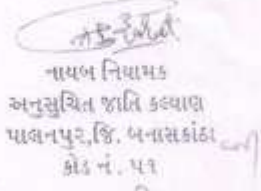 નાયબ નિયામક
અનુસુચિત જાતિ કલ્યાણ
પાલનપુર,જિ. બનાસકાંઠા
કોડ નં. ૫૧